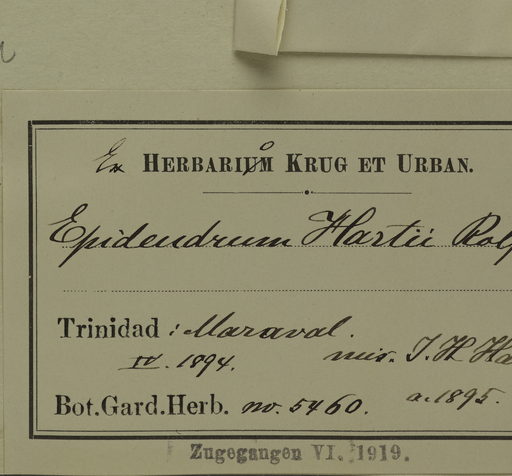 Ex HERBARIO KRUG ET URBAN.
Epidendrum Hartii Rolf
Trinidad : Maraval.
IV. 1894. mis. J. H. Ha
a. 1895.
Bot. Gard. Herb. no. 5460.
Zugegangen VI. 1919.